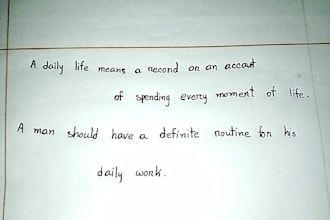 A daily life means a record or an accout
of spending every moment of life.
A man should have a definite routine for his
daily work.